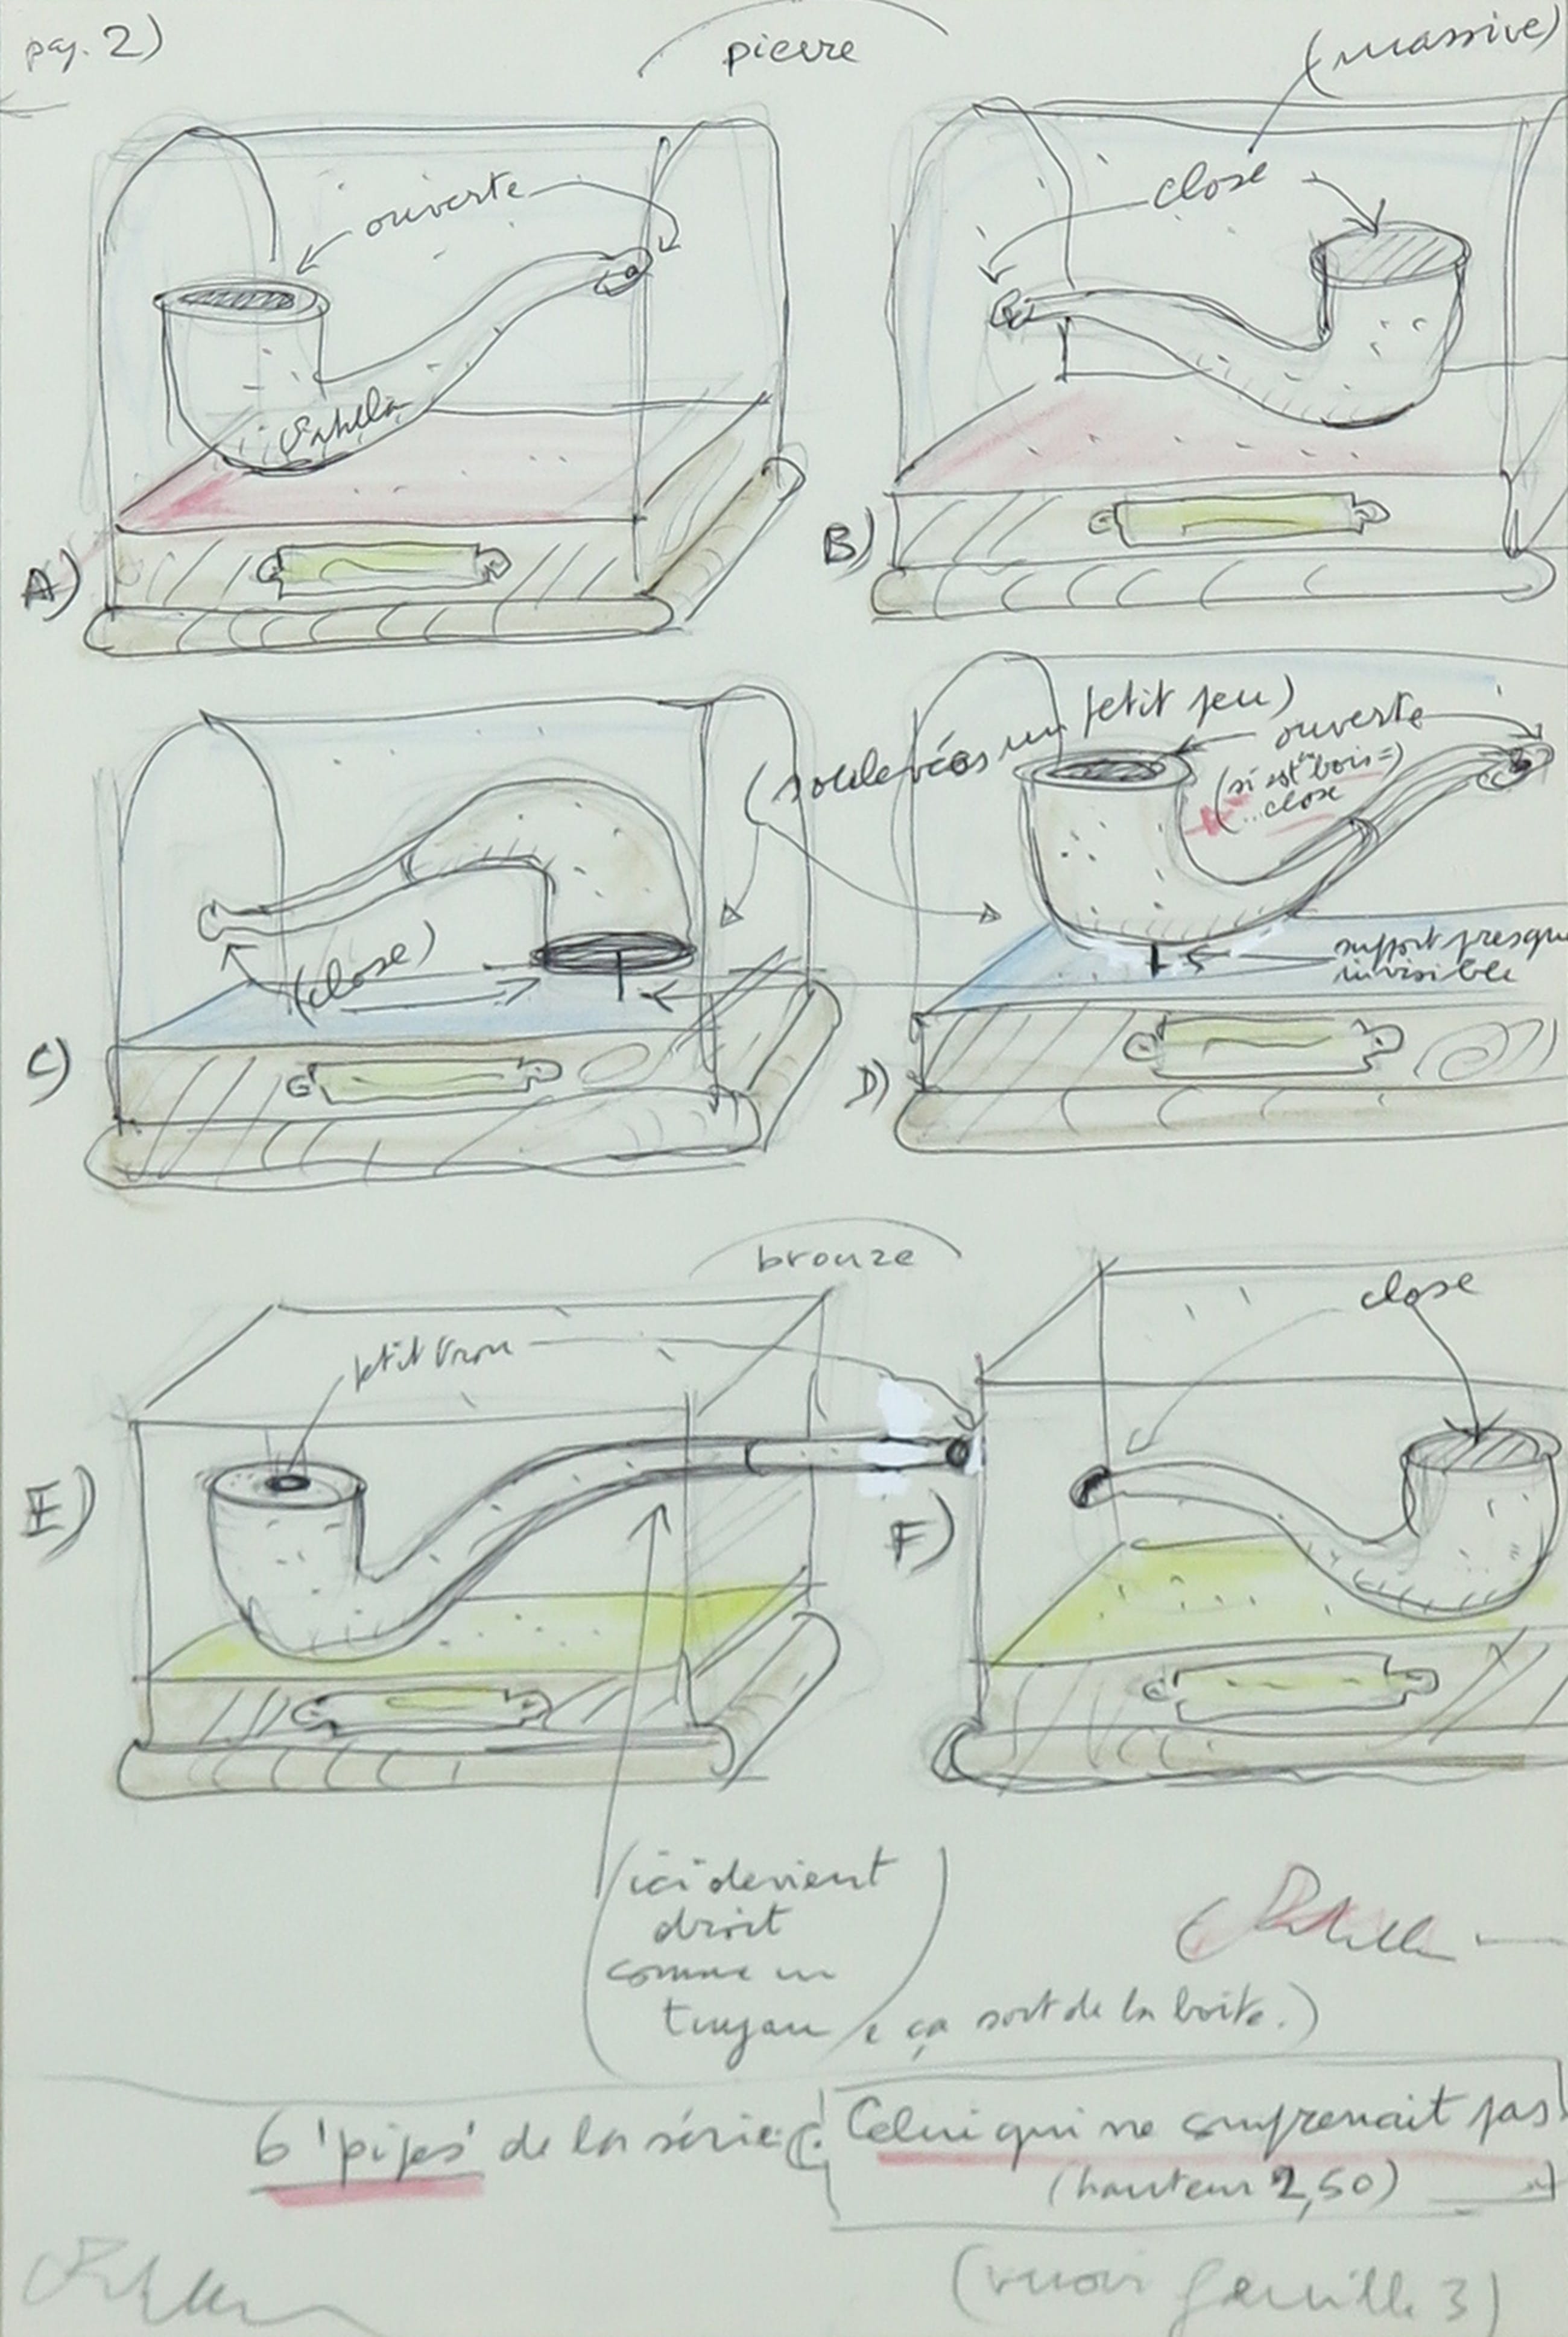 pag. 2)
pierre
(massive)
ouverte
close
A)
B)
(soulevées un petit peu)
ouverte
(si est en bois =)
(...close
(close)
support presque
invisible
C)
D)
bronze
close
petit trou
E)
F)
(ici devient
droit
comme un
tuyau / e ça sort de la boite.)
6 'pipes' de la série: Celui qui ne comprenait pas
(hauteur 2,50)
feuille 3)